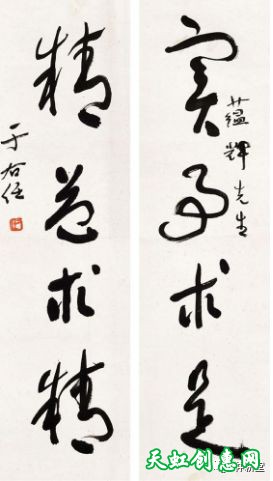 實事求是
蘊輝先生
精益求精
于右任
天虹创惠网